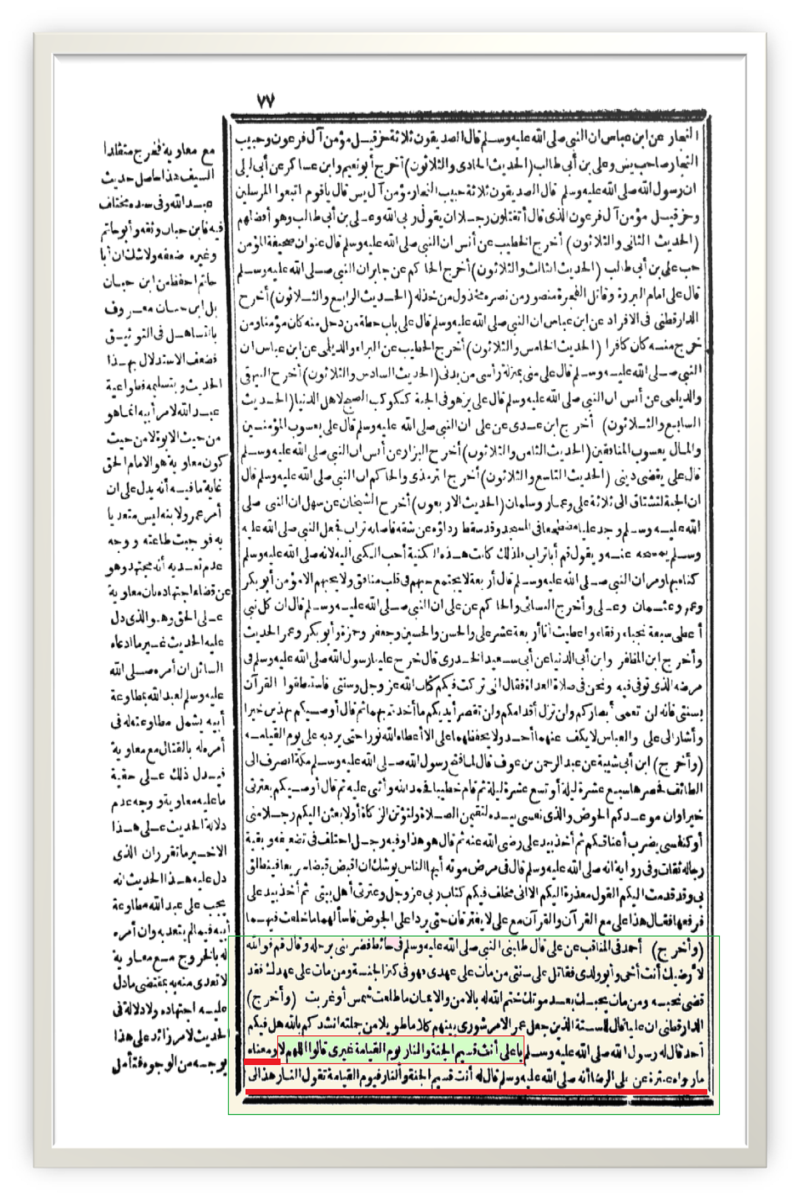 ٧٧
النجار عن ابن عباس ان النبي صلى الله عليه وسلم قال الصديقون ثلاثة حزقيل مؤمن آل فرعون وحبيب
النجار صاحب يس وعلي بن أبي طالب (الحديث الحادى والثلاثون) أخرج أبو نعيم وابن عساكر عن أبي ليلى
ان رسول الله صلى الله عليه وسلم قال الصديقون ثلاثة حبيب النجار مؤمن آل يس قال ياقوم اتبعوا المرسلين
وحزقيل مؤمن آل فرعون الذى قال أتقتلون رجلا ان يقول ربى الله وعلي بن أبي طالب وهو أفضلهم
(الحديث الثاني والثلاثون) أخرج الخطيب عن أنس ان النبي صلى الله عليه وسلم قال عنوان صحيفة المؤمن
حب على بن أبي طالب (الحديث الثالث والثلاثون) أخرج الحاكم عن جابر ان النبي صلى الله عليه وسلم
قال على امام البررة وقاتل الفجرة منصور من نصره مخذول من خذله (الحديث الرابع والثلاثون) أخرج
الدارقطنى فى الافراد عن ابن عباس ان النبي صلى الله عليه وسلم قال على باب حطة من دخل منه كان مؤمنا ومن
خرج منه كان كافرا (الحديث الخامس والثلاثون) أخرج الخطيب عن البراء والديلمى عن ابن عباس ان
النبي صلى الله عليه وسلم قال على منى بمنزلة رأسى من بدنى (الحديث السادس والثلاثون) أخرج البيهقى
والديلمى عن أنس ان النبي صلى الله عليه وسلم قال على يزهو فى الجنة ككوكب الصبح لاهل الدنيا (الحديث
السابع والثلاثون) أخرج ابن عدى عن على ان النبي صلى الله عليه وسلم قال على يعسوب المؤمنين
والمال يعسوب المنافقين (الحديث الثامن والثلاثون) أخرج البزار عن أنس ان النبي صلى الله عليه وسلم
قال على يقضى دينى (الحديث التاسع والثلاثون) أخرج الترمذى والحاكم ان النبي صلى الله عليه وسلم قال
ان الجنة لتشتاق الى ثلاثة على وعمار وسلمان (الحديث الاربعون) أخرج الشيخان عن سهل ان النبي صلى
الله عليه وسلم وجد عليا مضطجعا فى المسجد وقد سقط رداؤه عن شقه فاصابه تراب فجعل النبي صلى الله عليه
وسلم يمسحه عنه ويقول قم أبا تراب فلذلك كانت هذه الكنية أحب الكنى اليه لانه صلى الله عليه وسلم
كناه بها ومر ان النبي صلى الله عليه وسلم قال أربعة لا يجتمع حبهم فى قلب منافق ولا يحبهم الا مؤمن أبو بكر
وعمر وعثمان وعلى وأخرج النسائى والحاكم عن على ان النبي صلى الله عليه وسلم قال ان كل نبى
أعطى سبعة نجباء رفقاء واعطيت أنا أربعة عشر على والحسن والحسين وجعفر وحمزة وأبو بكر وعمر الحديث
وأخرج ابن المظفر وابن أبي الدنيا عن أبي سعيد الخدرى قال خرج علينا رسول الله صلى الله عليه وسلم فى
مرضه الذى توفى فيه ونحن فى صلاة الغداة فقال انى تركت فيكم كتاب الله عز وجل وسنتى فاستنطقوا القرآن
بسنتى فانه لن تعمى أبصاركم ولن تزل أقدامكم ولن تقصر أيديكم ما أخذتم بهما ثم قال أوصيكم بهذين خيرا
وأشار الى على والعباس لا يكف عنهما أحد ولا يحفظهما على الا أعطاه الله نورا حتى يرد به على يوم القيامة
(وأخرج) ابن أبي شيبة عن عبد الرحمن بن عوف قال لما فتح رسول الله صلى الله عليه وسلم مكة انصرف الى
الطائف فحصرها سبع عشرة ليلة أو تسع عشرة ليلة ثم قام خطيبا فحمد الله وأثنى عليه ثم قال أوصيكم بعترتى
خيرا وان موعدكم الحوض والذى نفسى بيده لتقيمن الصلاة ولتؤتن الزكاة أو لابعثن اليكم رجلا منى
أو كنفسى يضرب أعناقكم ثم أخذ بيد على رضى الله عنه ثم قال هو هذا وفيه رجل اختلف فى تضعيفه وبقية
رجاله ثقات وفى رواية انه صلى الله عليه وسلم قال فى مرض موته أيها الناس يوشك ان اقبض قبضا سريعا فينطلق
بى وقد قدمت اليكم القول معذرة اليكم الا انى مخلف فيكم كتاب ربى عز وجل وعترتى أهل بيتى ثم أخذ بيد على
فرفعها فقال هذا على مع القرآن والقرآن مع على لا يفترقان حتى يردا على الحوض فاسألهما ما خلفت فيهما
(وأخرج) أحمد فى المناقب عن على قال طلبنى النبي صلى الله عليه وسلم فى حائط فضربنى برجله وقال قم فوالله
لارضينك أنت أخى وأبو ولدى فقاتل على سنتى من مات على عهدى فهو فى كنز الجنة ومن مات على عهدك فقد
قضى نحبه ومن مات يحبك بعد موتك ختم الله له بالامن والايمان ما طلعت شمس أو غربت (وأخرج)
الدارقطنى ان عليا قال للستة الذين جعل عمر الامر شورى بينهم كلاما طويلا من جملته أنشدكم بالله هل فيكم
أحد قال له رسول الله صلى الله عليه وسلم يا على أنت قسيم الجنة والنار يوم القيامة غيرى قالوا اللهم لا ومعناه
ما رواه عنترة عن على الرضا أنه صلى الله عليه وسلم قال له أنت قسيم الجنة والنار فيوم القيامة تقول النار هذا لى
مع معاوية فخرج متقلدا
السيف هذا حاصل حديث
عبد الله وفى سنده مختلف
فيه فابن حبان وثقه وأبو حاتم
وغيره ضعفه ولا شك ان أبا
حاتم احفظ من ابن حبان
بل ابن حبان معروف
بالتساهل فى التوثيق
فضعف الاستدلال بهذا
الحديث وبتسليمه فطواعية
عبد الله لامر أبيه انما هو
من حيث الابوة لا من حيث
كون معاوية هو الامام الحق
غاية ما فيه أنه يدل على ان
أمر عمرو لابنه ليس متعديا
به فوجبت طاعته ووجه
عدم تعديه أنه مجتهد وهو
عن قضاء اجتهاده بان معاوية
على الحق وهو والذى دل
عليه الحديث غير ما ادعاه
السائل ان أمره صلى الله
عليه وسلم لعبد الله بمطاوعة
أبيه يشمل مطاوعته له فى
أمره له بالقتال مع معاوية
فيدل ذلك على حقية
ما عليه معاوية ووجه عدم
دلالة الحديث على هذا
الاخير ما تقرر ان الذى
دل عليه هذا الحديث انه
يجب على عبد الله مطاوعة
أبيه فيما لم يتعد به وان أمره
له بالخروج مع معاوية
لا تعدى منه به بمقتضى ما دل
عليه اجتهاده ولا دلالة فى
الحديث لامر زائد على هذا
بوجه من الوجوه فتأمل